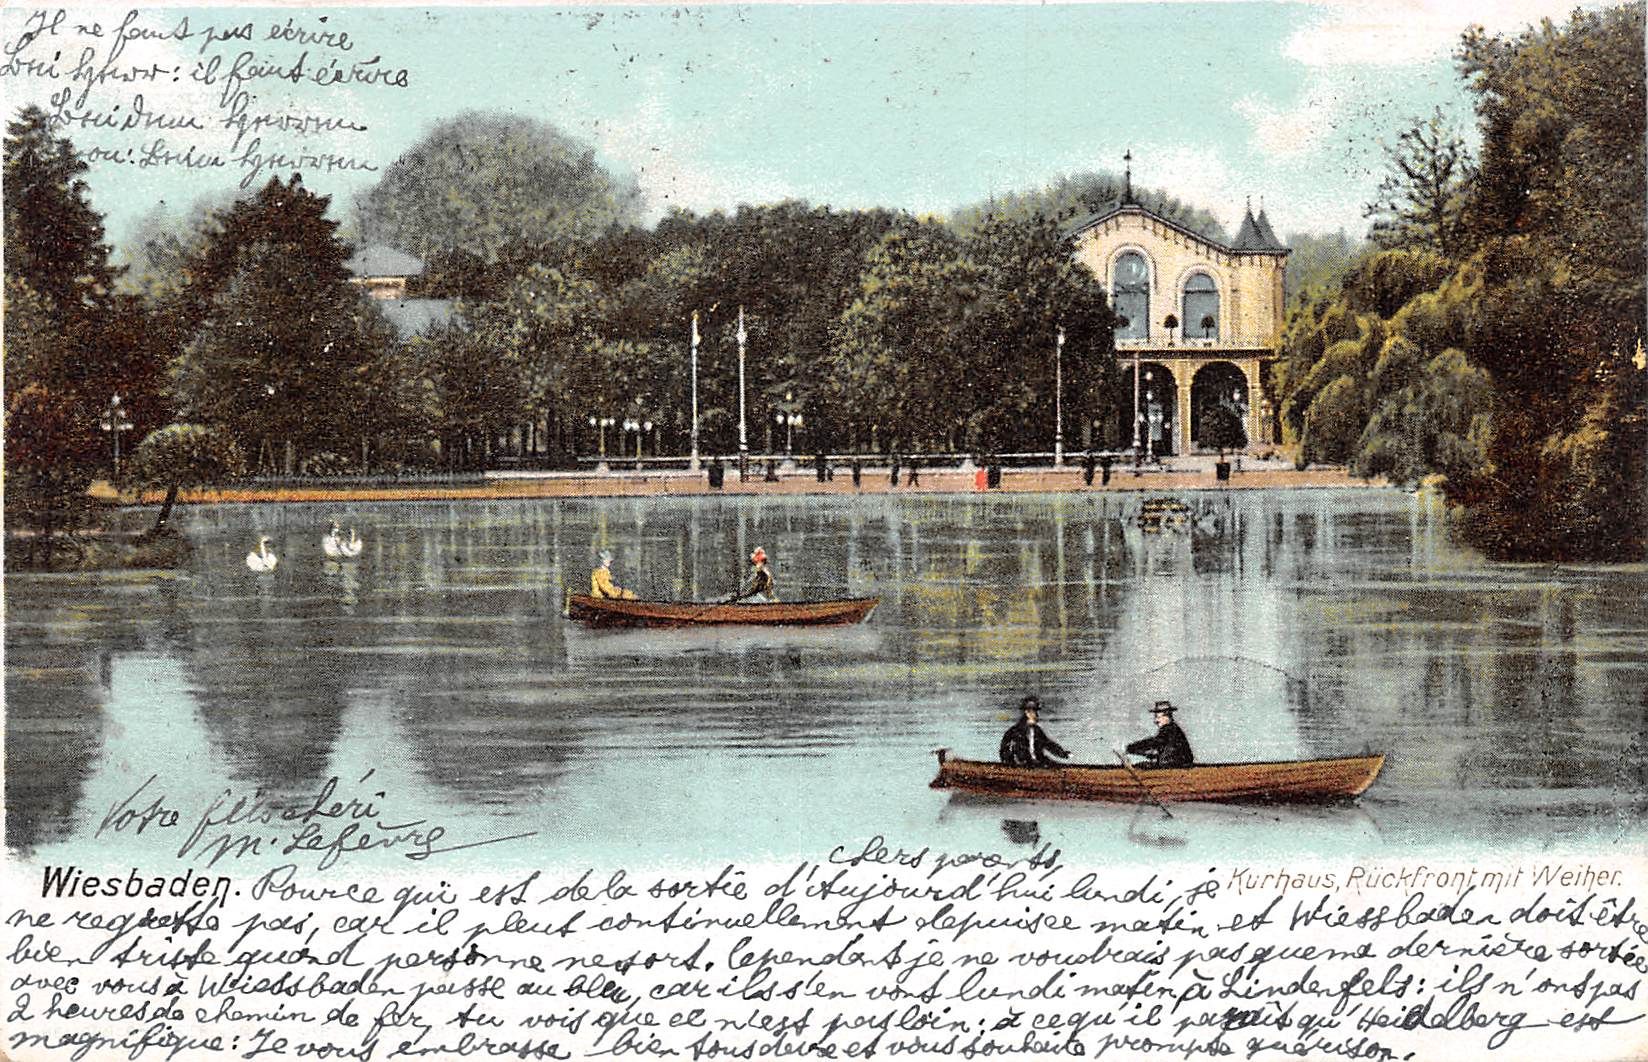 Il ne faut pas écrire
bei Herr: il faut écrire
bei dem Herren
ou: beim Herren
Votre fils chéri
M. Lefèvre
chers parents,
Wiesbaden. Pource qui est dela sortie d'Aujourd'hui lundi, je
Kurhaus, Rückfront mit Weiher.
ne regrette pas, car il pleut continuellement depuis ce matin et Wiessbaden doit être
bien triste quand personne ne sort. Cependant je ne voudrais pas que ma dernière sortie
avec vous à Wiessbaden passe au bleu, car ils s'en vont lundi matin à Lindenfels: ils n'ont pas
2 heures de chemin de fer, tu vois que ce n'est pas loin: à ce qu'il paraît qu'Heidelberg est
magnifique: Je vous embrasse bien tous deux et vous souhaite prompte guérison.